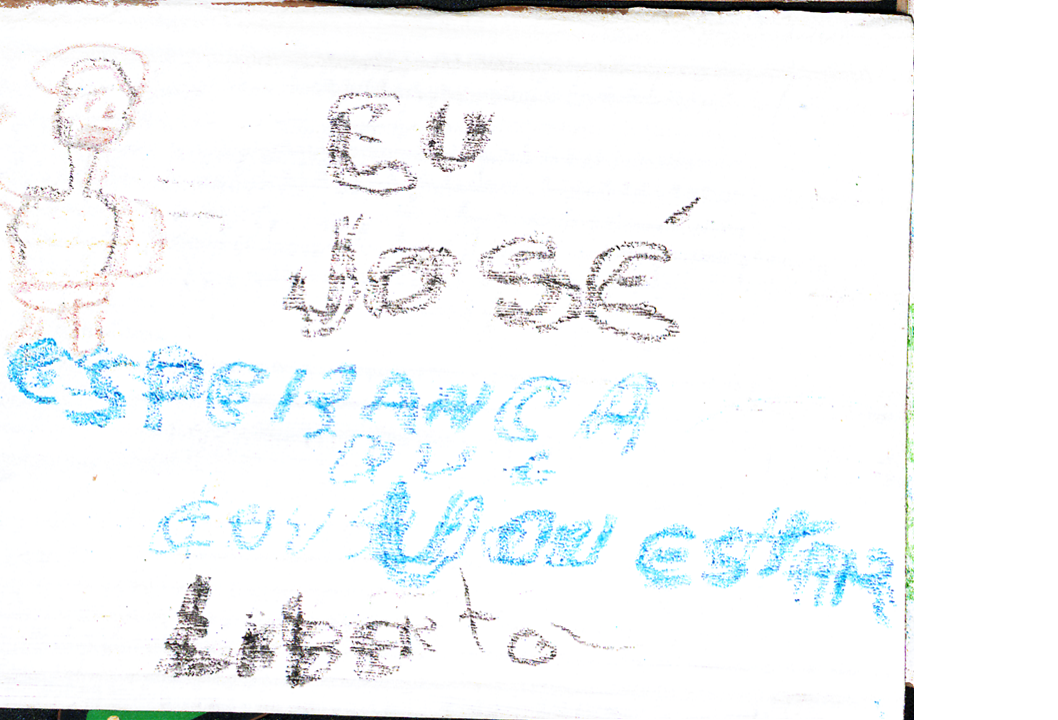 EU
JOSÉ
ESPERANÇA
QUE
EU VOU ESTAR
LIBERto